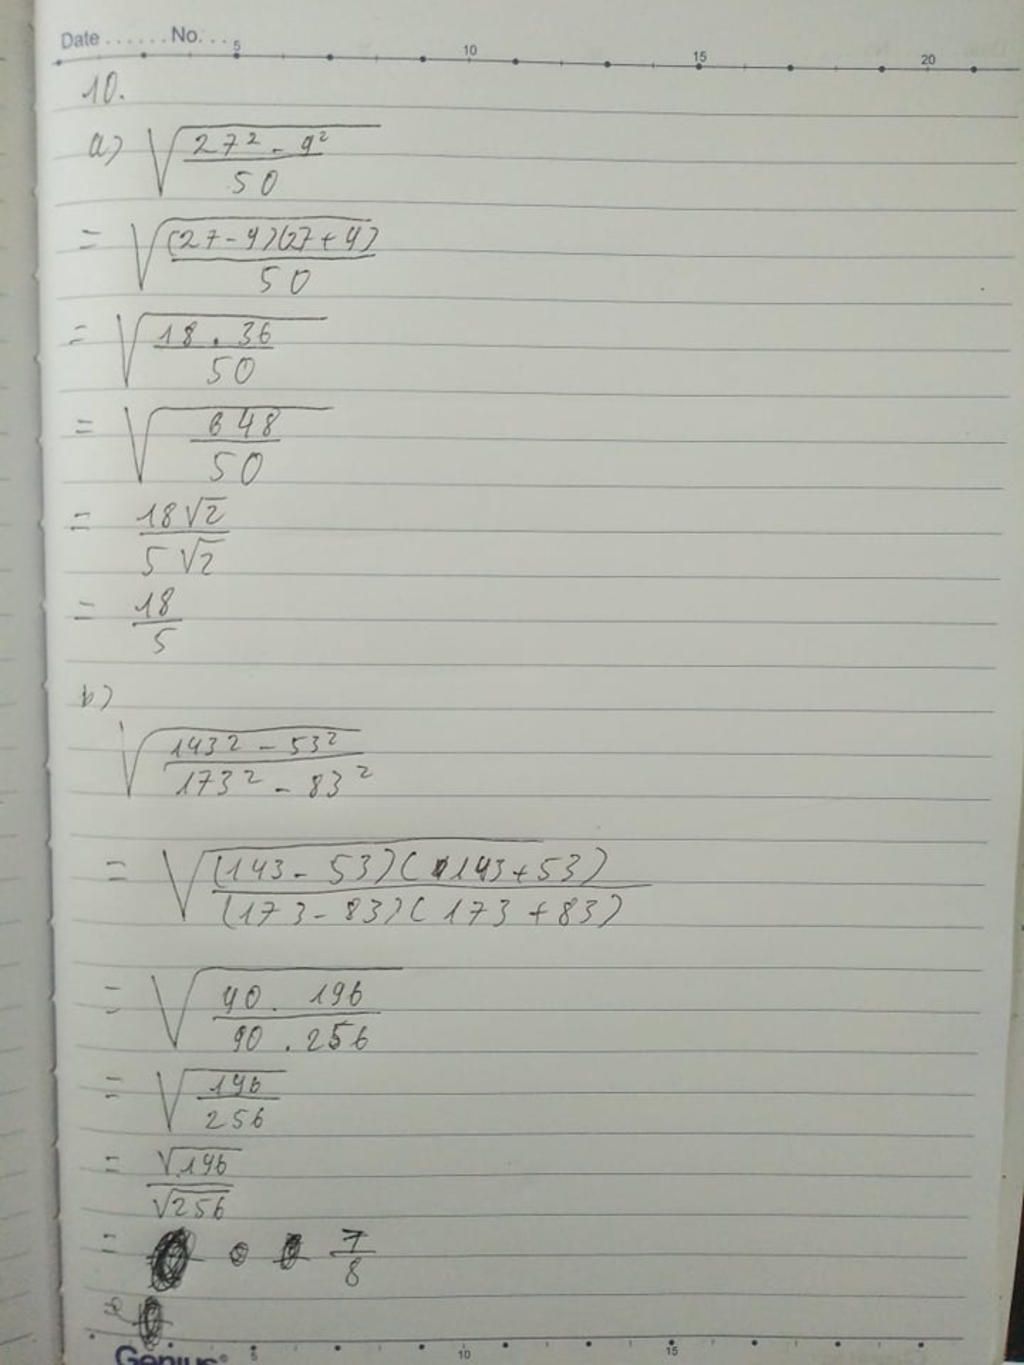 Date ...... No. ...
5 10 15 20
10.
a) √((27² - 9²)/50)
= √((27-9)(27+9)/50)
= √((18 . 36)/50)
= √(648/50)
= 18√2/5√2
= 18/5
b)
√((143² - 53²)/(173² - 83²))
= √((143 - 53)(143 + 53)/(173 - 83)(173 + 83))
= √((90 . 196)/(90 . 256))
= √(196/256)
= √196/√256
= 7/8
Genius
5 10 15